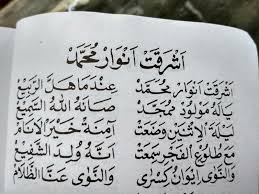 اَشْرَقَتْ اَنْوَارُ مُحَمَّدْ
اَشْرَقَتْ اَنْوَارُ مُحَمَّدْ عِنْدَمَا هَلَّ الرَّبِيْعُ
يَالَهُ مَوْلُوْدٌ مُمَجَّدْ صَانَهُ اللهُ السَّمِيْعُ
لَيْلَةَ الْاِثْنَيْنِ وَضَعَتْ آمِنَةْ خَيْرَ الْاَنَامْ
مَعَ طُلُوْعِ الْفَجْرِ سَمِعَتْ اَنَّهُ وُلِدَ الشَّفِيْعُ
وَالنُّوَى اِيْوَانُ كِسْرَى وَالنُّوَى عَنَّا الظَّلَامْ